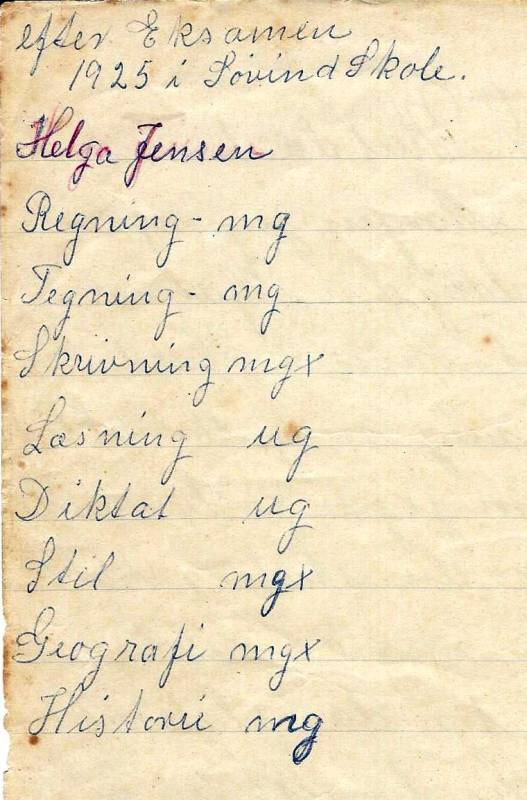 efter Eksamen
1925 i Søvind Skole.
Helga Jensen
Regning - mg
Tegning - mg
Skrivning mgx
Læsning ug
Diktat ug
Stil mgx
Geografi mgx
Historie mg